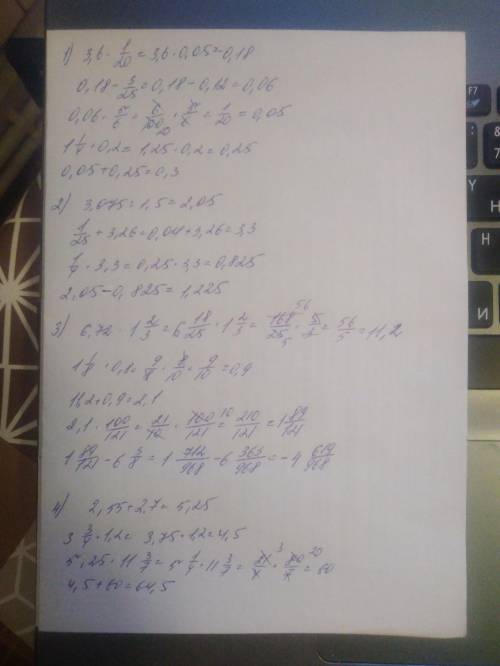 1) 3,6 · 1/20 = 3,6 · 0,05 = 0,18
0,18 - 3/25 = 0,18 - 0,12 = 0,06
0,06 · 5/6 = 6/100 20 · 5/6 = 1/20 = 0,05
1 1/4 · 0,2 = 1,25 · 0,2 = 0,25
0,05 + 0,25 = 0,3
2) 3,075 : 1,5 = 2,05
1/25 + 3,26 = 0,04 + 3,26 = 3,3
1/4 · 3,3 = 0,25 · 3,3 = 0,825
2,05 - 0,825 = 1,225
3) 6,72 · 1 2/3 = 6 18/25 · 1 2/3 = 168/25 56 5 · 5/3 = 56/5 = 11,2
1 1/8 · 0,8 = 9/8 · 8/10 = 9/10 = 0,9
1,2 + 0,9 = 2,1
2,1 · 100/121 = 21/10 · 100/121 10 = 210/121 = 1 89/121
1 89/121 - 6 3/8 = 1 712/968 - 6 363/968 = -4 619/968
4) 2,55 + 2,7 = 5,25
3 3/4 · 1,2 = 3,75 · 1,2 = 4,5
5,25 · 11 3/7 = 5 1/4 · 11 3/7 = 21/4 3 · 80/7 20 = 60
4,5 + 60 = 64,5
F7
&
7
8
Y
H
И